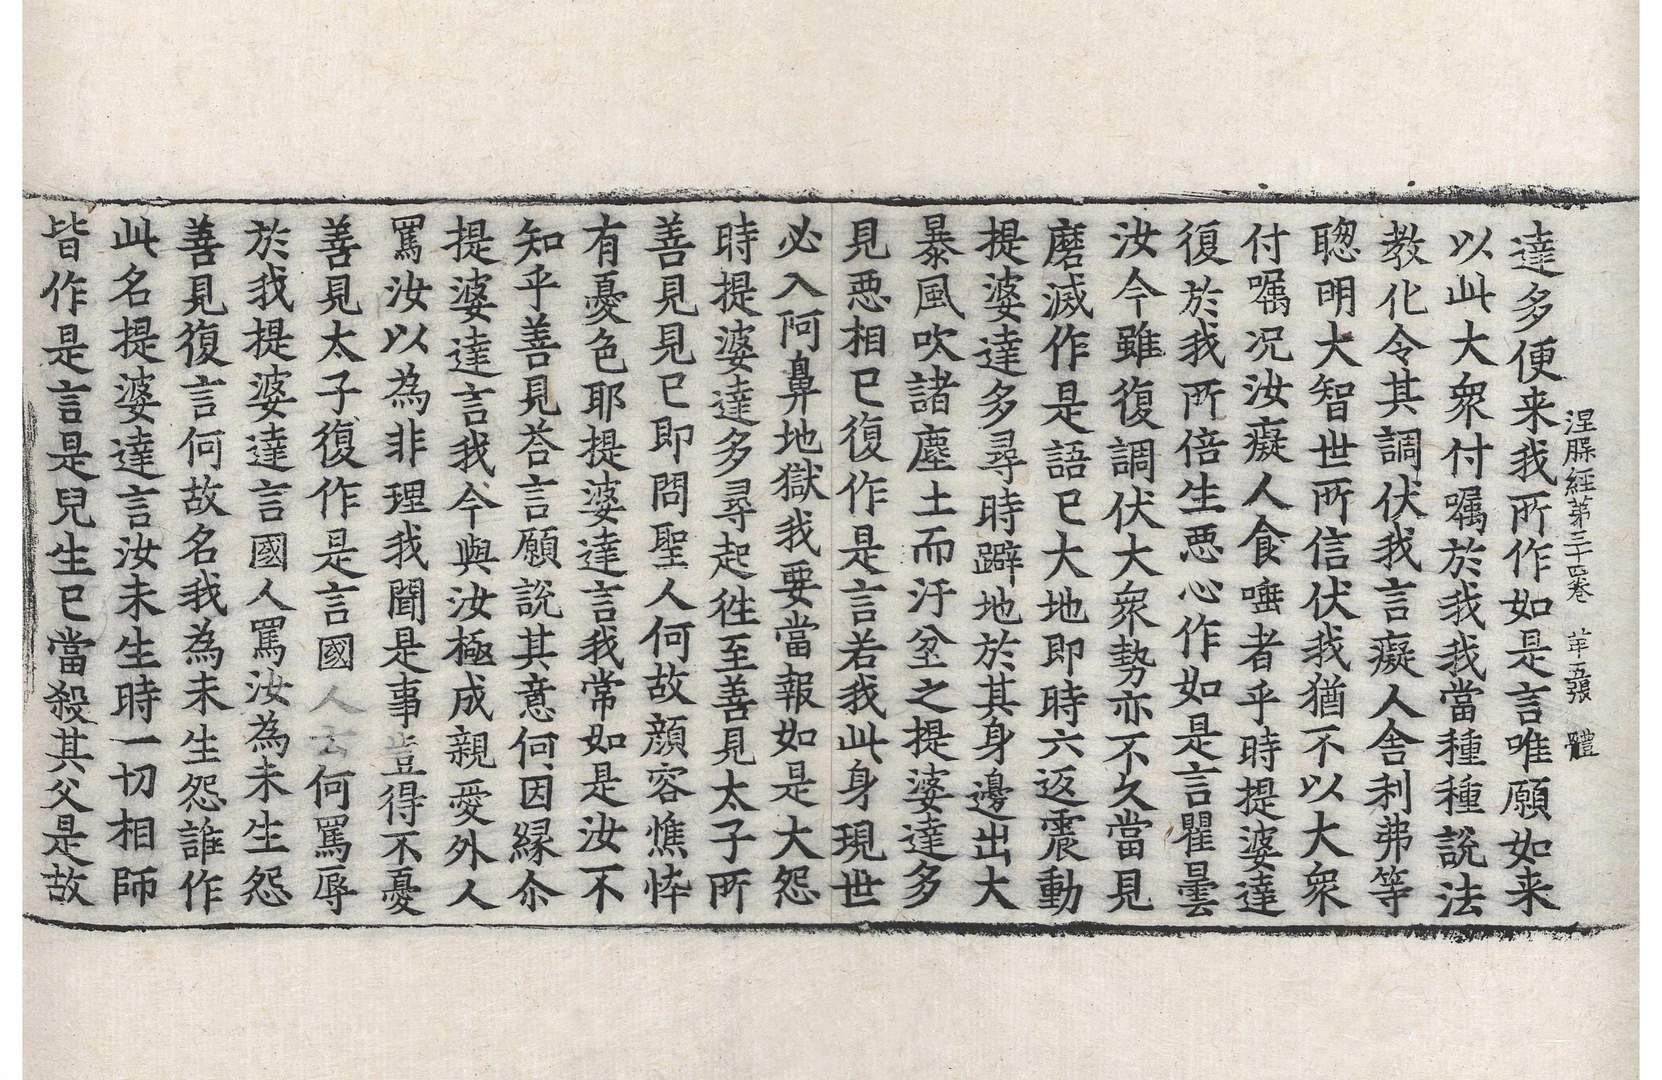 涅槃經第三十四卷　第五張　體
達多便来我所作如是言唯願如来
以此大衆付嘱於我我當種種說法
教化令其調伏我言癡人舎利弗等
聦明大智世所信伏我猶不以大衆
付嘱况汝癡人食唾者乎時提婆達
復於我所倍生悪心作如是言瞿曇
汝今雖復調伏大衆勢亦不久當見
磨滅作是語已大地即時六返震動
提婆達多尋時躃地於其身邊出大
暴風吹諸塵土而汙坌之提婆達多
見悪相已復作是言若我此身現世
必入阿鼻地獄我要當報如是大怨
時提婆達多尋起徃至善見太子所
善見見已即問聖人何故顔容憔悴
有憂色耶提婆達言我常如是汝不
知乎善見荅言願說其意何因縁尒
提婆達言我今與汝極成親愛外人
罵汝以為非理我聞是事豈得不憂
善見太子復作是言國人云何罵辱
於我提婆達言國人罵汝為未生怨
善見復言何故名我為未生怨誰作
此名提婆達言汝未生時一切相師
皆作是言是兒生已當殺其父是故